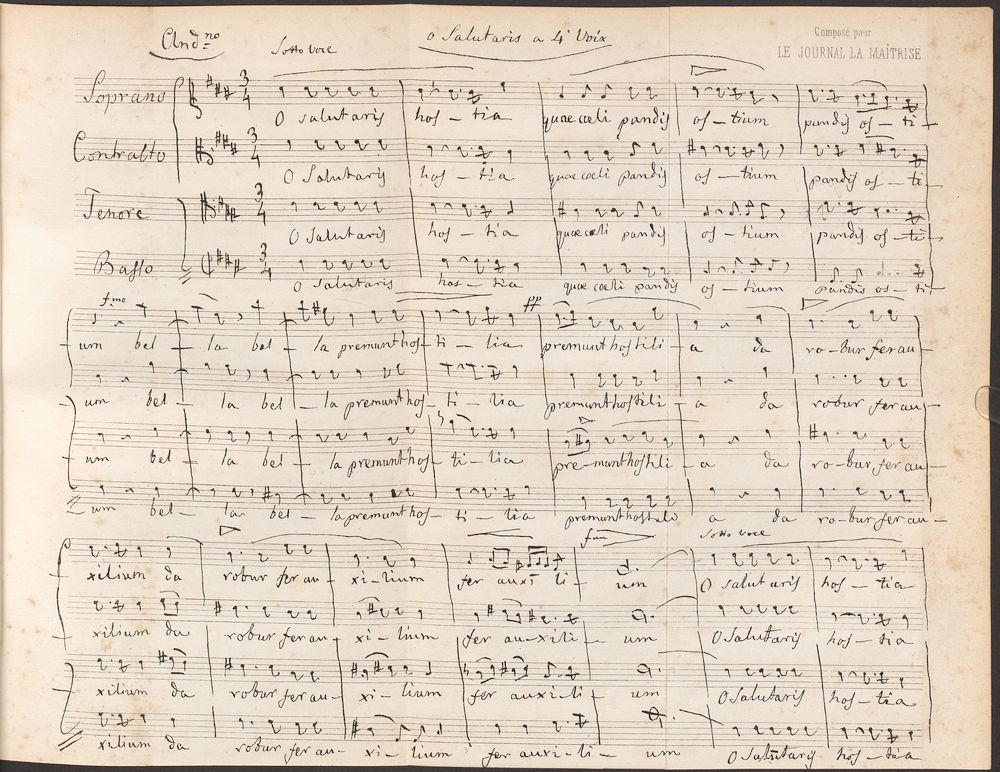 And.no
Sotto voce
O Salutaris a 4 Voix
Composé pour
LE JOURNAL LA MAÎTRISE
Soprano 3 4
O salutaris hos – tia quae cœli pandis os – tium pandis os – ti –
Contralto 3 4
O Salutaris hos – tia quae cœli pandis os – tium pandis os – ti –
Tenore 3 4
O Salutaris hos – tia quae cœli pandis os – tium pandis os – ti –
Basso 3 4
O Salutaris hos – tia quae cœli pandis os – tium pandis os – ti –
f.mo pp
um bel – la bel – la premunt hos – ti – lia premunt hostili – a da ro – bur fer au –
um bel – la bel – la premunt hos – ti – lia premunt hostili – a da robur fer au –
um bel – la bel – la premunt hos – ti – lia pre – munt hostili – a da ro – bur fer au –
um bel – la bel – la premunt hos – ti – lia premunt hostili a da ro – bur fer au –
Sotto voce
xilium da robur fer au – xi – lium fer auxi li – um O salutaris hos – tia
xilium da robur fer au – xi – lium fer au – xili – um O Salutaris hos – tia
xilium da robur fer au – xi – lium fer auxi – li – um O Salutaris hos – tia
xilium da robur fer au – xi – lium fer auxi – li – um O Salutaris hos – tia